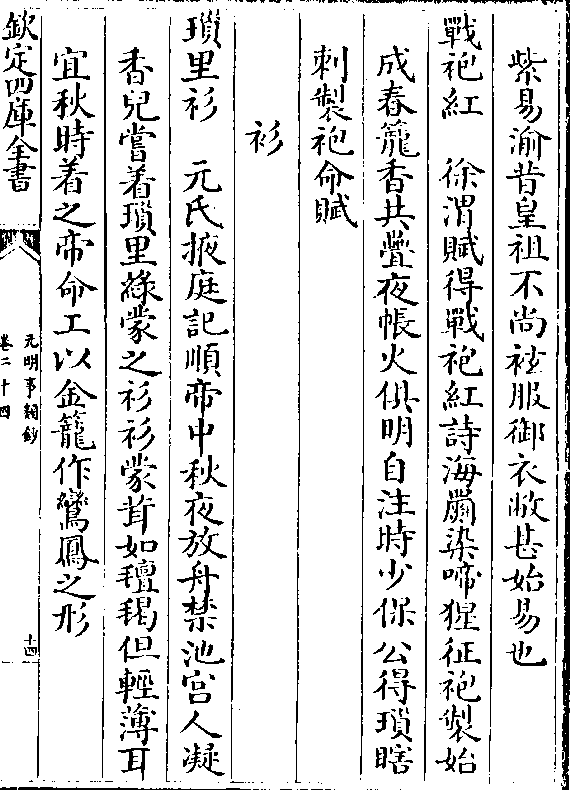 紫易渝昔皇祖不尚袨服御衣敝甚始易也
戰袍紅　徐渭賦得戰袍紅詩海罽染啼猩征袍製始
成春籠香共疊夜帳火俱明自注時少保公得瑣瞎
刺製袍命賦
衫
瑣里衫　元氏掖庭記順帝中秋夜放舟禁池宫人凝
香兒嘗着瑣里緑蒙之衫衫蒙茸如氊毼但輕薄耳
宜秋時着之帝命工以金籠作鸞鳳之形
欽定四庫全書
元明事類鈔
卷二十四
十四